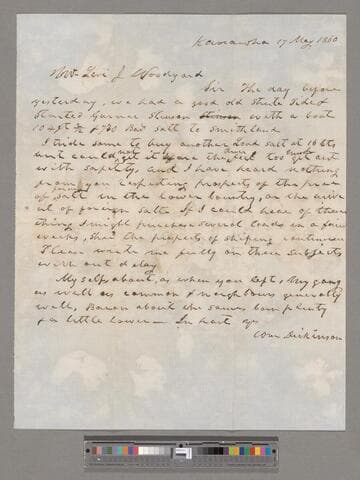 Kanawha 17 May 1860
Mr. Levi J Woodyard
Sir The day before
yesterday, we had a good old State tide &
started Garner Stewson with a boat
10457 ½ & 730 Bar salt to Smithland
I tride some to buy another load salt at 16 cts,
but could not get it & are the river too much to get out
with safety, and I have heard nothing
from you respecting prospects of the price
of salt in the lower country, or the arive
al of foreign salt. If I could hear of these
things I might purchase several loads in a few
weeks, should the prospects of shiping continue
Please write me fully on these subjects
with out delay
My self about, as when you left, my gang
as well as common & neighbours generally
well, Bacon about the same, corn plenty
& a little lower — In hast yrs
Wm Dickinson